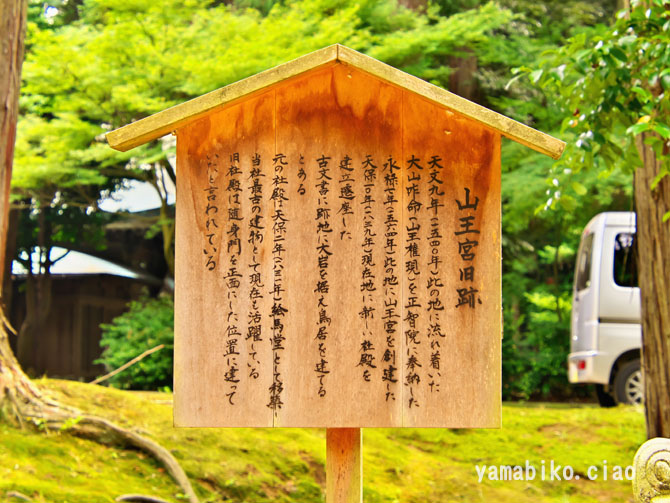 山王宮旧跡
天文九年(一五四〇年)此の地に流れ着いた
大山咋命「山王権現」を正智院に奉納した
永禄七年(一五六四年)此の地に山王宮を創建した
天保一〇年(一八三九年)現在地に新しい社殿を
建立遷座した
古文書に跡地に大岩を据え鳥居を建てる
とある
元の社殿は天保二年(一八三一年)絵馬堂として移築
当社最古の建物として現在も活躍している
旧社殿は随身門を正面にした位置に建って
いたと言われている
yamabiko.ciao